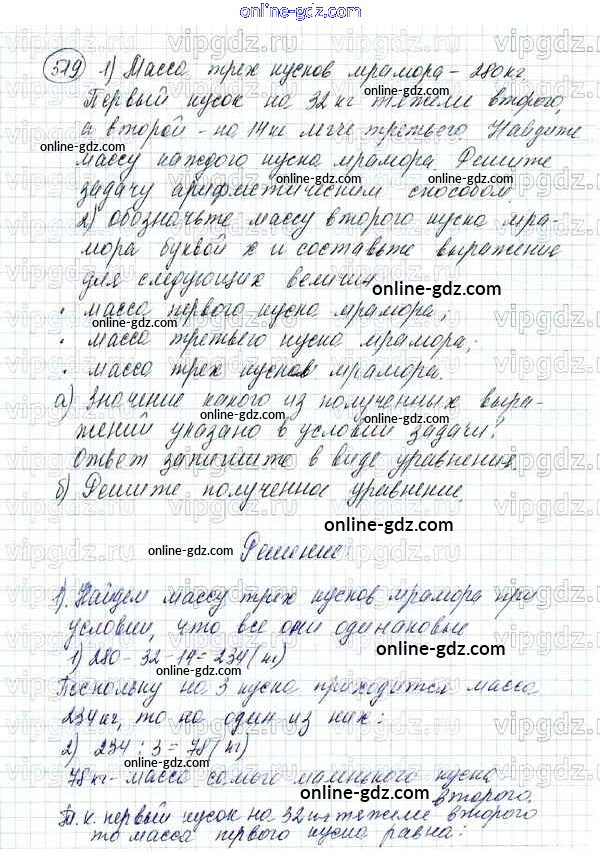 online-gdz.com
519 1) Масса трех кусков мрамора – 280 кг.
Первый кусок на 32 кг тяжели второго,
а второй – на 14 кг легче третьего. Найдите
массу каждого куска мрамора. Решите
задачу арифметическим способом.
2) Обозначьте массу второго куска мра-
мора буквой х и составьте выражение
для следующих величин
• масса первого куска мрамора;
• масса третьего куска мрамора;
• масса трех кусков мрамора.
а) Значение какого из полученных выра-
жений указано в условии задачи?
ответ запишите в виде уравнения.
б) Решите полученное уравнение.
online-gdz.com
Решение:
1). Найдем массу трех кусков мрамора при
условии, что все они одинаковые
1) 280 – 32 – 14 = 234 (кг)
Поскольку на 3 куска приходится масса
234 кг, то на один из них:
2) 234 : 3 = 78 (кг)
78 кг – масса самого маленького куска
второго.
Т. к. первый кусок на 32 кг тяжелее второго
то масса первого куска равна: